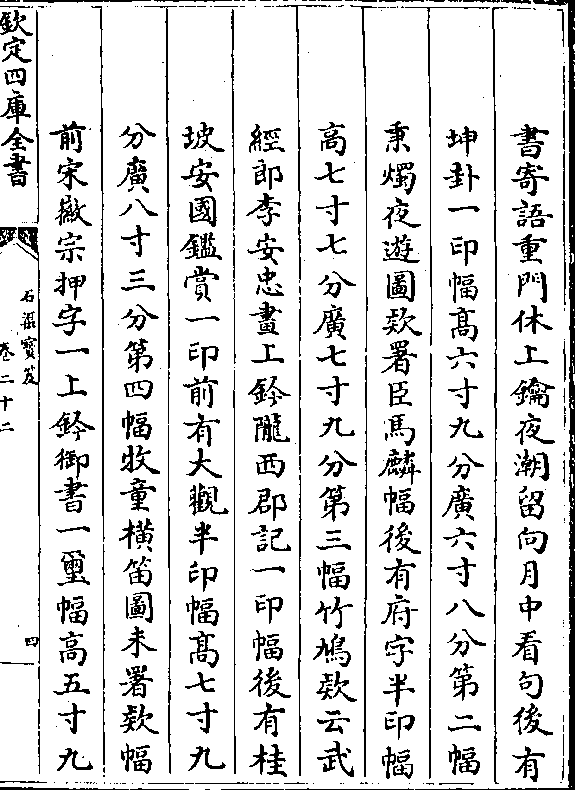 書寄語重門休上鑰夜潮留向月中看句後有
坤卦一印幅高六寸九分廣六寸八分第二幅
秉燭夜遊圖欵署臣馬麟幅後有府字半印幅
高七寸七分廣七寸九分第三幅竹鳩欵云武
經郎李安忠畫上鈐隴西郡記一印幅後有桂
坡安國鑑賞一印前有大觀半印幅高七寸九
分廣八寸三分第四幅牧童橫笛圖未署欵幅
前宋徽宗押字一上鈐御書一璽幅高五寸九
欽定四庫全書
石渠寳笈
卷二十二
四